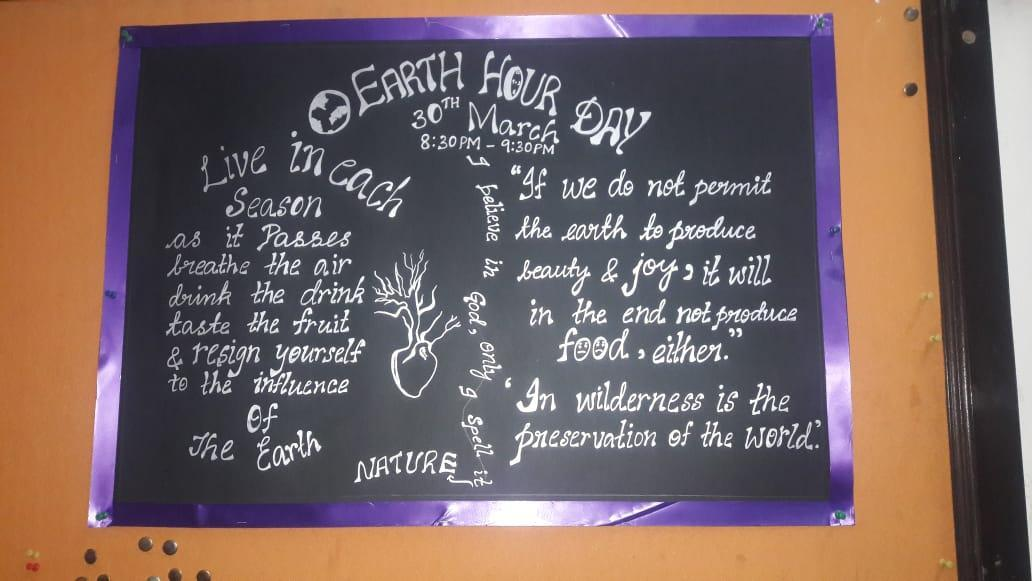 EARTH HOUR DAY
30TH March
8:30PM - 9:30PM
Live in each
Season
as it Passes
breathe the air
drink the drink
taste the fruit
& resign yourself
to the influence
Of
The Earth
I believe in God, only I spell it
NATURE
"If we do not permit
the earth to produce
beauty & joy, it will
in the end not produce
food, either."
'In wilderness is the
preservation of the world.'